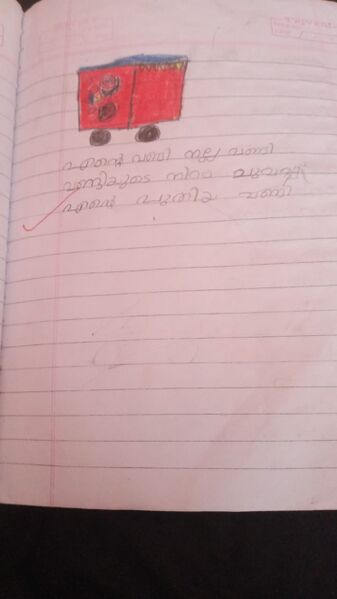 എന്റെ വണ്ടി നല്ല വണ്ടി
വണ്ടിയുടെ നിറം ചുവപ്പ്
എന്റെ പുതിയ വണ്ടി